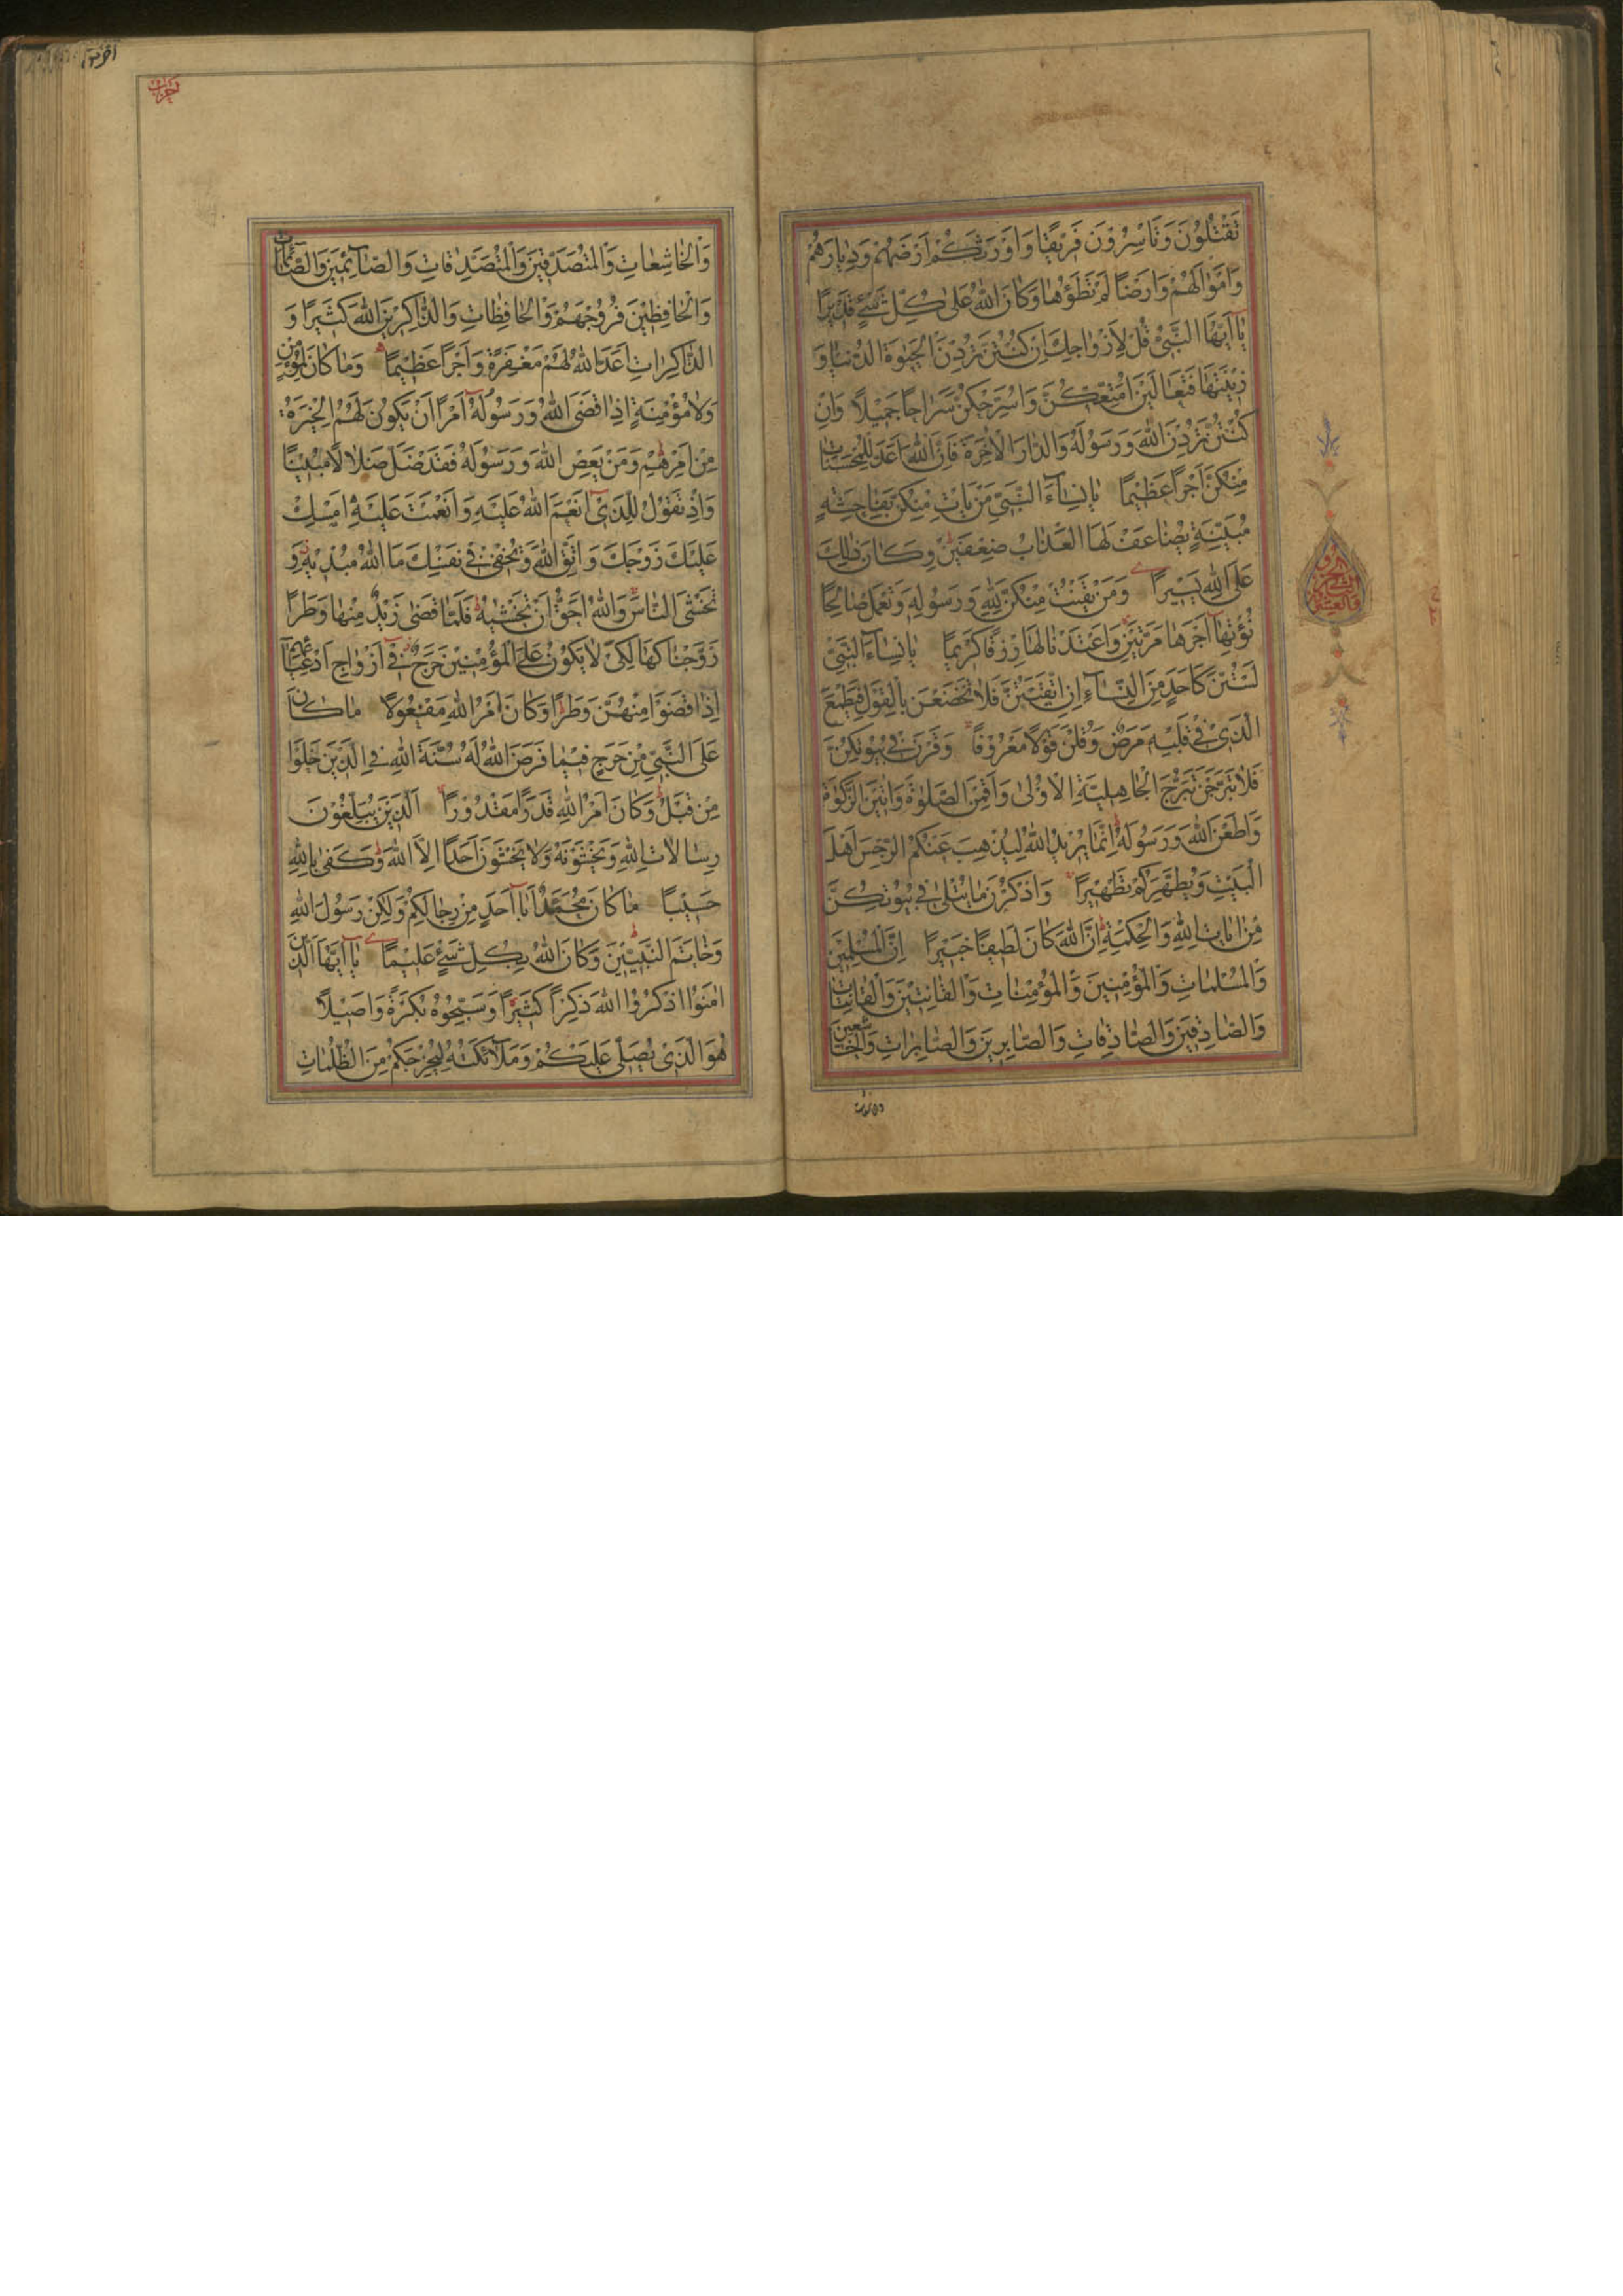 تَقْتُلُونَ وَتَأْسِرُونَ فَرِيقًا وَأَوْرَثَكُمْ أَرْضَهُمْ وَدِيَارَهُمْ
وَأَمْوَالَهُمْ وَأَرْضًا لَمْ تَطَؤُهَا وَكَانَ اللهُ عَلَى كُلِّ شَيْءٍ قَدِيرًا
يَا أَيُّهَا النَّبِيُّ قُلْ لِأَزْوَاجِكَ إِنْ كُنْتُنَّ تُرِدْنَ الْحَيٰوةَ الدُّنْيَا وَ
زِينَتَهَا فَتَعَالَيْنَ أُمَتِّعْكُنَّ وَأُسَرِّحْكُنَّ سَرَاحًا جَمِيلًا وَإِنْ
كُنْتُنَّ تُرِدْنَ اللهَ وَرَسُولَهُ وَالدَّارَ الْآخِرَةَ فَإِنَّ اللهَ أَعَدَّ لِلْمُحْسِنَاتِ
مِنْكُنَّ أَجْرًا عَظِيمًا يَا نِسَاءَ النَّبِيِّ مَنْ يَأْتِ مِنْكُنَّ بِفَاحِشَةٍ
مُبَيِّنَةٍ يُضَاعَفْ لَهَا الْعَذَابُ ضِعْفَيْنِ وَكَانَ ذٰلِكَ
عَلَى اللهِ يَسِيرًا وَمَنْ يَقْنُتْ مِنْكُنَّ لِلّٰهِ وَرَسُولِهِ وَتَعْمَلْ صَالِحًا
نُؤْتِهَا أَجْرَهَا مَرَّتَيْنِ وَأَعْتَدْنَا لَهَا رِزْقًا كَرِيمًا يَا نِسَاءَ النَّبِيِّ
لَسْتُنَّ كَأَحَدٍ مِنَ النِّسَاءِ إِنِ اتَّقَيْتُنَّ فَلَا تَخْضَعْنَ بِالْقَوْلِ فَيَطْمَعَ
الَّذِي فِي قَلْبِهِ مَرَضٌ وَقُلْنَ قَوْلًا مَعْرُوفًا وَقَرْنَ فِي بُيُوتِكُنَّ
فَلَا تَبَرَّجْنَ تَبَرُّجَ الْجَاهِلِيَّةِ الْأُولَى وَأَقِمْنَ الصَّلٰوةَ وَآتِينَ الزَّكٰوةَ
وَأَطِعْنَ اللهَ وَرَسُولَهُ إِنَّمَا يُرِيدُ اللهُ لِيُذْهِبَ عَنْكُمُ الرِّجْسَ أَهْلَ
الْبَيْتِ وَيُطَهِّرَكُمْ تَطْهِيرًا وَاذْكُرْنَ مَا يُتْلَى فِي بُيُوتِكُنَّ
مِنْ آيَاتِ اللهِ وَالْحِكْمَةِ إِنَّ اللهَ كَانَ لَطِيفًا خَبِيرًا إِنَّ الْمُسْلِمِينَ
وَالْمُسْلِمَاتِ وَالْمُؤْمِنِينَ وَالْمُؤْمِنَاتِ وَالْقَانِتِينَ وَالْقَانِتَاتِ
وَالصَّادِقِينَ وَالصَّادِقَاتِ وَالصَّابِرِينَ وَالصَّابِرَاتِ وَالْخَاشِعِينَ
وَالْخَاشِعَاتِ وَالْمُتَصَدِّقِينَ وَالْمُتَصَدِّقَاتِ وَالصَّائِمِينَ وَالصَّائِمَاتِ
وَالْحَافِظِينَ فُرُوجَهُمْ وَالْحَافِظَاتِ وَالذَّاكِرِينَ اللهَ كَثِيرًا وَ
الذَّاكِرَاتِ أَعَدَّ اللهُ لَهُمْ مَغْفِرَةً وَأَجْرًا عَظِيمًا وَمَا كَانَ لِمُؤْمِنٍ
وَلَا مُؤْمِنَةٍ إِذَا قَضَى اللهُ وَرَسُولُهُ أَمْرًا أَنْ يَكُونَ لَهُمُ الْخِيَرَةُ
مِنْ أَمْرِهِمْ وَمَنْ يَعْصِ اللهَ وَرَسُولَهُ فَقَدْ ضَلَّ ضَلَالًا مُبِينًا
وَإِذْ تَقُولُ لِلَّذِي أَنْعَمَ اللهُ عَلَيْهِ وَأَنْعَمْتَ عَلَيْهِ أَمْسِكْ
عَلَيْكَ زَوْجَكَ وَاتَّقِ اللهَ وَتُخْفِي فِي نَفْسِكَ مَا اللهُ مُبْدِيهِ وَ
تَخْشَى النَّاسَ وَاللهُ أَحَقُّ أَنْ تَخْشٰيهُ فَلَمَّا قَضَى زَيْدٌ مِنْهَا وَطَرًا
زَوَّجْنَاكَهَا لِكَيْ لَا يَكُونَ عَلَى الْمُؤْمِنِينَ حَرَجٌ فِي أَزْوَاجِ أَدْعِيَائِهِمْ
إِذَا قَضَوْا مِنْهُنَّ وَطَرًا وَكَانَ أَمْرُ اللهِ مَفْعُولًا مَا كَانَ
عَلَى النَّبِيِّ مِنْ حَرَجٍ فِيمَا فَرَضَ اللهُ لَهُ سُنَّةَ اللهِ فِي الَّذِينَ خَلَوْا
مِنْ قَبْلُ وَكَانَ أَمْرُ اللهِ قَدَرًا مَقْدُورًا الَّذِينَ يُبَلِّغُونَ
رِسَالَاتِ اللهِ وَيَخْشَوْنَهُ وَلَا يَخْشَوْنَ أَحَدًا إِلَّا اللهَ وَكَفَى بِاللهِ
حَسِيبًا مَا كَانَ مُحَمَّدٌ أَبَا أَحَدٍ مِنْ رِجَالِكُمْ وَلَكِنْ رَسُولَ اللهِ
وَخَاتَمَ النَّبِيِّينَ وَكَانَ اللهُ بِكُلِّ شَيْءٍ عَلِيمًا يَا أَيُّهَا الَّذِينَ
آمَنُوا اذْكُرُوا اللهَ ذِكْرًا كَثِيرًا وَسَبِّحُوهُ بُكْرَةً وَأَصِيلًا
هُوَ الَّذِي يُصَلِّي عَلَيْكُمْ وَمَلَائِكَتُهُ لِيُخْرِجَكُمْ مِنَ الظُّلُمَاتِ